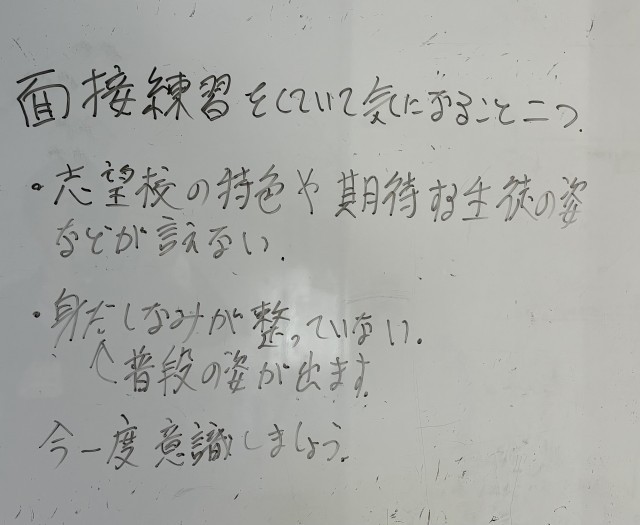 面接練習をしていて気になること二つ.
・志望校の特色や期待する生徒の姿
などが言えない.
・身だしなみが整っていない.
普段の姿が出ます.
今一度意識しましょう.